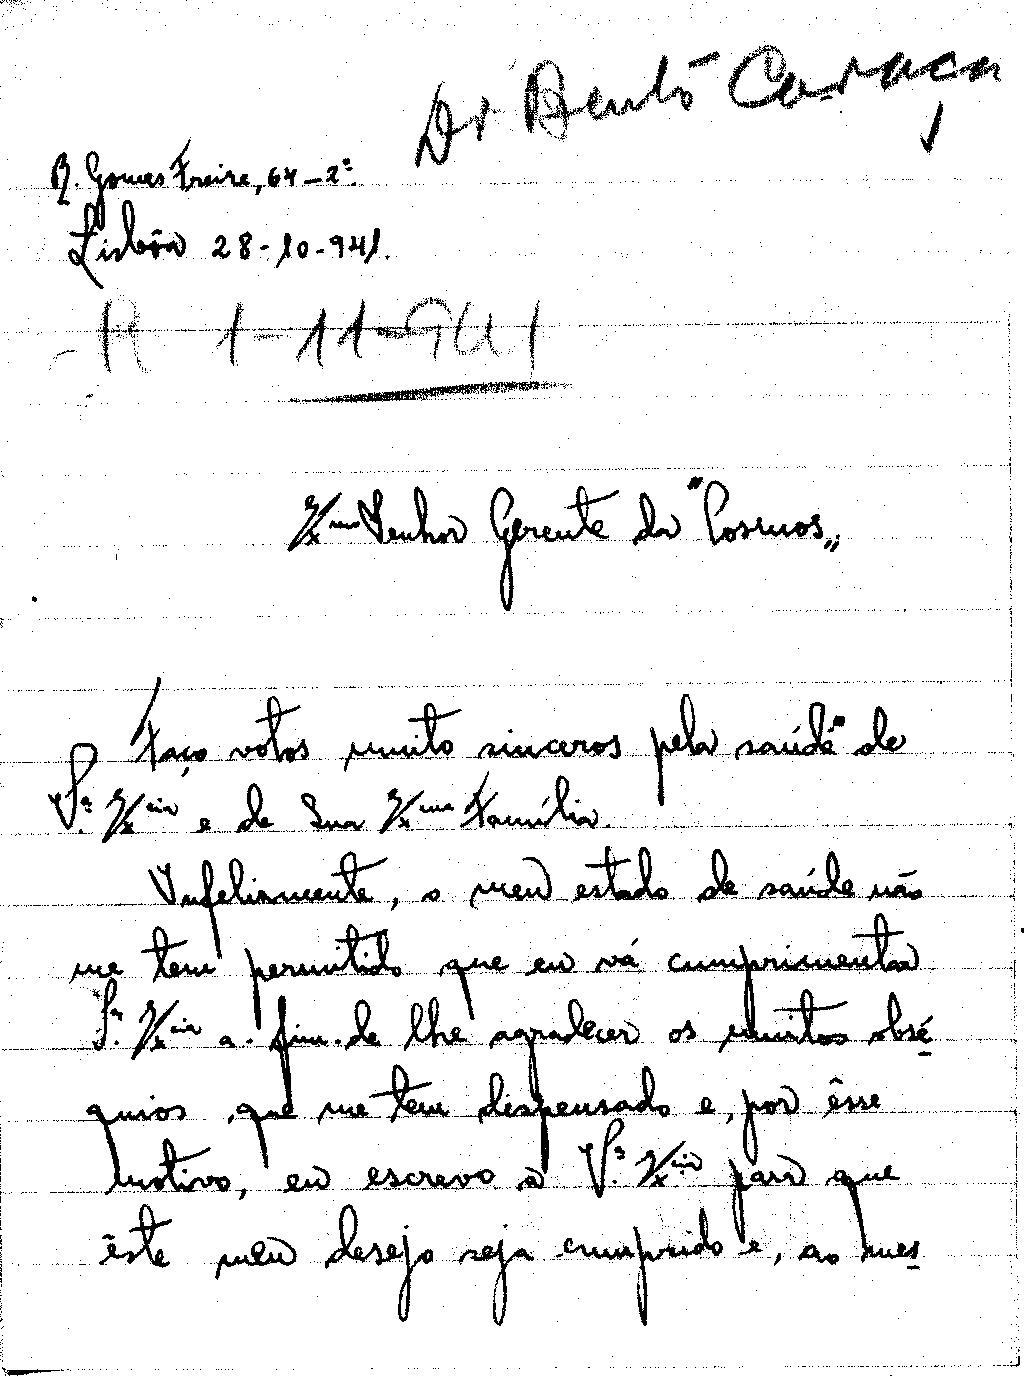 Dr Bento Caraça
R. Gomes Freire, 64-2º.
Lisbôa 28-10-941.
R 1-11-941
Exmo Senhor Gerente da "Cosmos"
Faço votos muito sinceros pela saúde de
V.ª Excia e de Sua Exma Família.
Infelizmente, o meu estado de saúde não
me tem permitido que eu vá cumprimentar
V.ª Excia a-fim-de lhe agradecer os muitos obsé-
quios que me tem dispensado e, por êsse
motivo, eu escrevo a V.ª Excia para que
êste meu desejo seja cumprido e, ao mes-